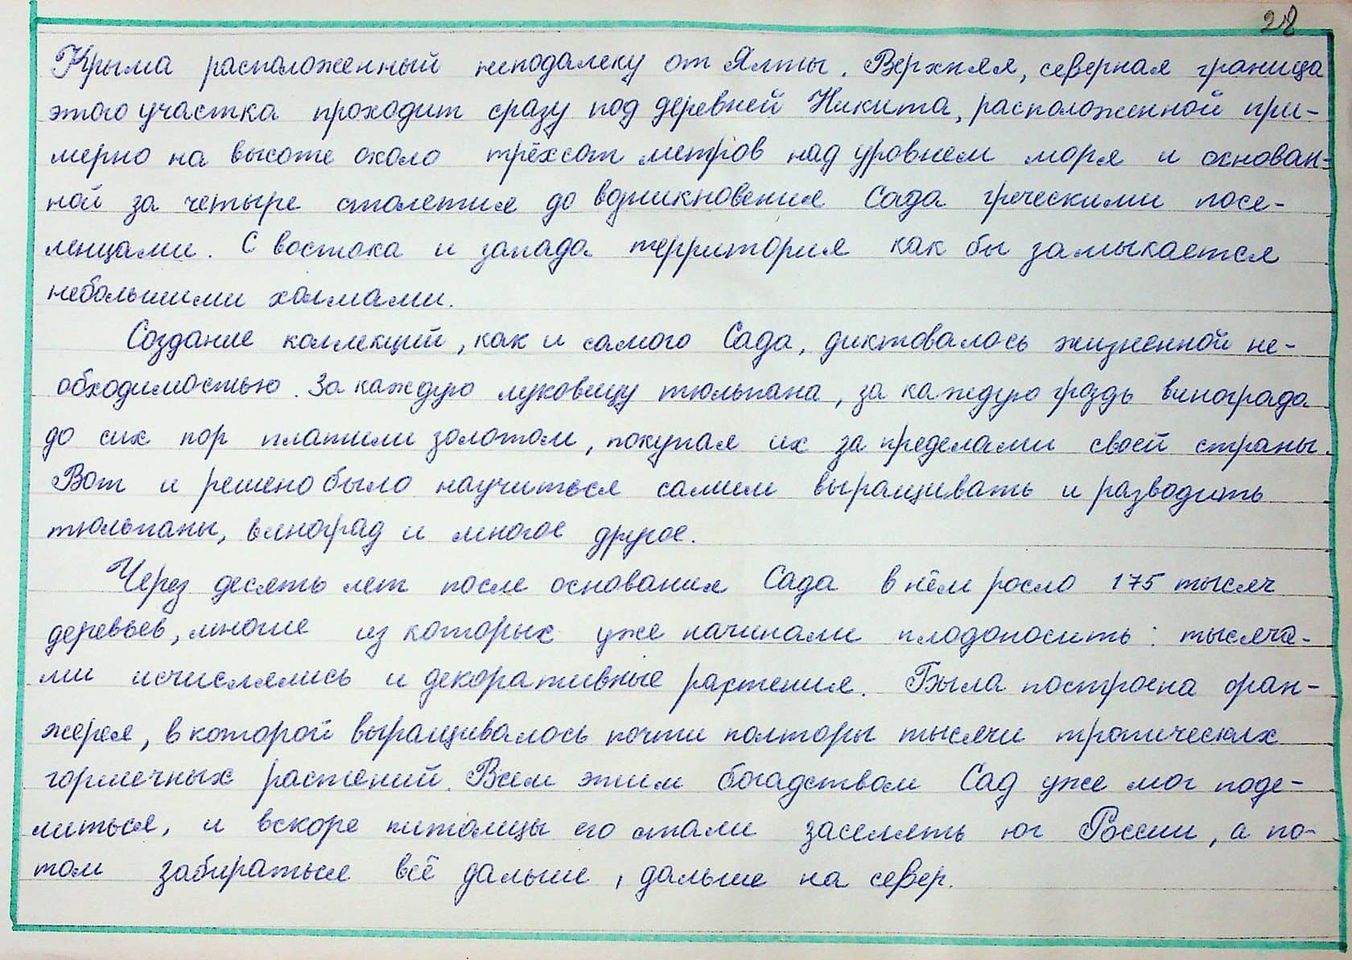 28
Крыма расположенный неподалеку от Ялты. Верхняя, северная граница
этого участка проходит сразу под деревней Никита, расположенной при-
мерно на высоте около трёхсот метров над уровнем моря и основан-
ной за четыре столетия до возникновения Сада греческими посе-
ленцами. С востока и запада территория как бы замыкается
небольшими холмами.
Создание коллекций, как и самого Сада, диктовалось жизненной не-
обходимостью. За каждую луковицу тюльпана, за каждую гроздь винограда
до сих пор платили золотом, покупая их за пределами своей страны.
Вот и решено было научиться самим выращивать и разводить
тюльпаны, виноград и многое другое.
Через десять лет после основания Сада в нём росло 175 тысяч
деревьев, многие из которых уже начинали плодоносить: тысяча-
ми исчислялись и декоративные растения. Была построена оран-
жерея, в которой выращивалось почти полторы тысячи тропических
горшечных растений. Всем этим богадством Сад уже мог поде-
литься, и вскоре питомцы его стали заселять юг России, а по-
том забираться всё дальше, дальше на север.